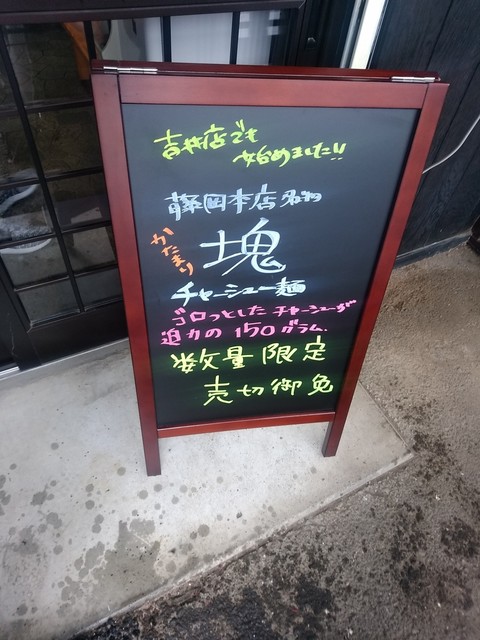 吉井店でも
始めました!!
藤岡本店名物
かたまり
塊
チャーシュー麺
ゴロっとしたチャーシューが
迫力の150グラム.
数量限定
売切御免